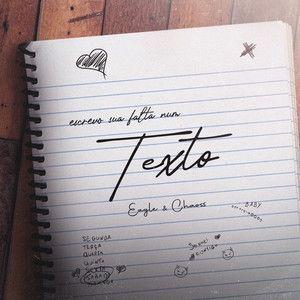 escrevo sua falta num
Texto
Eagle & Chaoss
BABY
SEGUNDA
TERÇA
QUARTA
QUINTA
SEXTA
SÁBADO